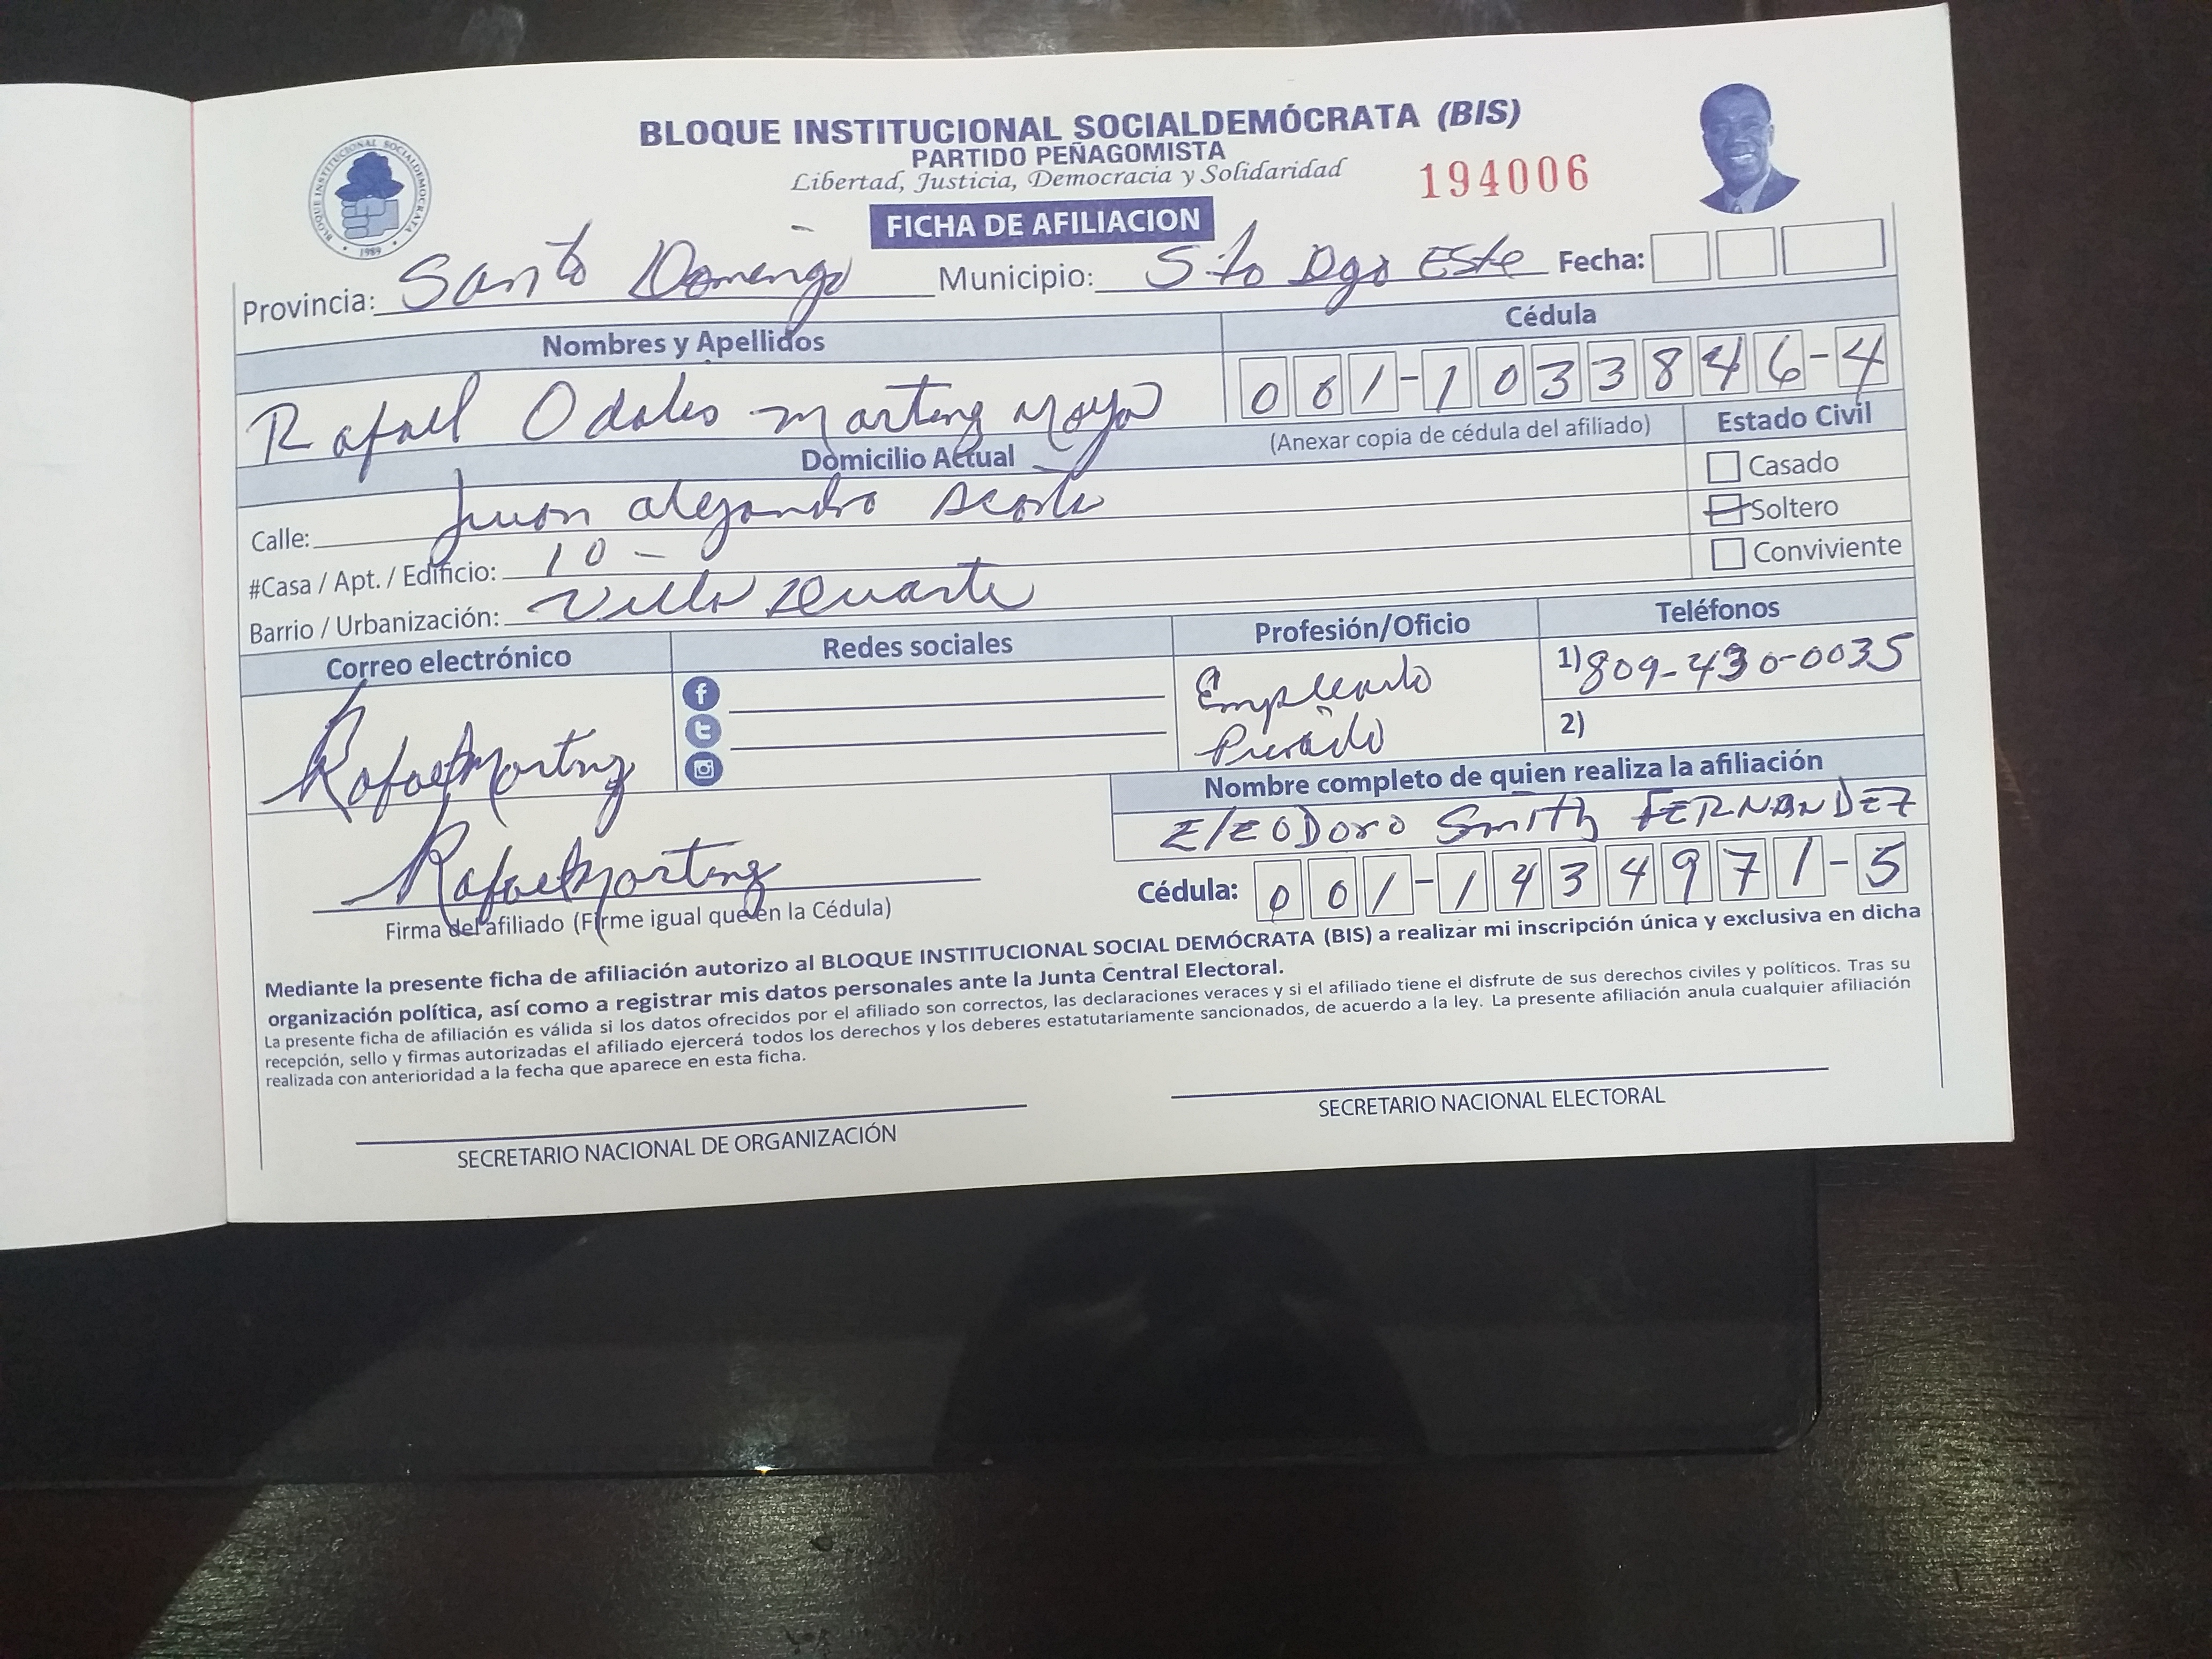 BLOQUE INSTITUCIONAL SOCIALDEMÓCRATA (BIS)
PARTIDO PEÑAGOMISTA
Libertad, Justicia, Democracia y Solidaridad
194006
BLOQUE INSTITUCIONAL SOCIALDEMOCRATA
1989
FICHA DE AFILIACION
Provincia: Santo Domingo Municipio: Sto Dgo Este Fecha:
Nombres y Apellidos Cédula
Rafael Odalis Martinez Moya 001-1033846-4
(Anexar copia de cédula del afiliado) Estado Civil
Domicilio Actual
Casado
Calle: Juan Alejandro Acosta
Soltero
#Casa / Apt. / Edificio: 10-
Conviviente
Barrio / Urbanización: Villa Duarte
Correo electrónico Redes sociales Profesión/Oficio Teléfonos
Rafael Martinez Empleado 1) 809-430-0035
Privado 2)
Nombre completo de quien realiza la afiliación
ElEODoro Smith FERNANDEZ
Rafael Martinez
Cédula: 001-1434971-5
Firma del afiliado (Firme igual que en la Cédula)
Mediante la presente ficha de afiliación autorizo al BLOQUE INSTITUCIONAL SOCIAL DEMÓCRATA (BIS) a realizar mi inscripción única y exclusiva en dicha
organización política, así como a registrar mis datos personales ante la Junta Central Electoral.
La presente ficha de afiliación es válida si los datos ofrecidos por el afiliado son correctos, las declaraciones veraces y si el afiliado tiene el disfrute de sus derechos civiles y políticos. Tras su
recepción, sello y firmas autorizadas el afiliado ejercerá todos los derechos y los deberes estatutariamente sancionados, de acuerdo a la ley. La presente afiliación anula cualquier afiliación
realizada con anterioridad a la fecha que aparece en esta ficha.
SECRETARIO NACIONAL DE ORGANIZACIÓN
SECRETARIO NACIONAL ELECTORAL